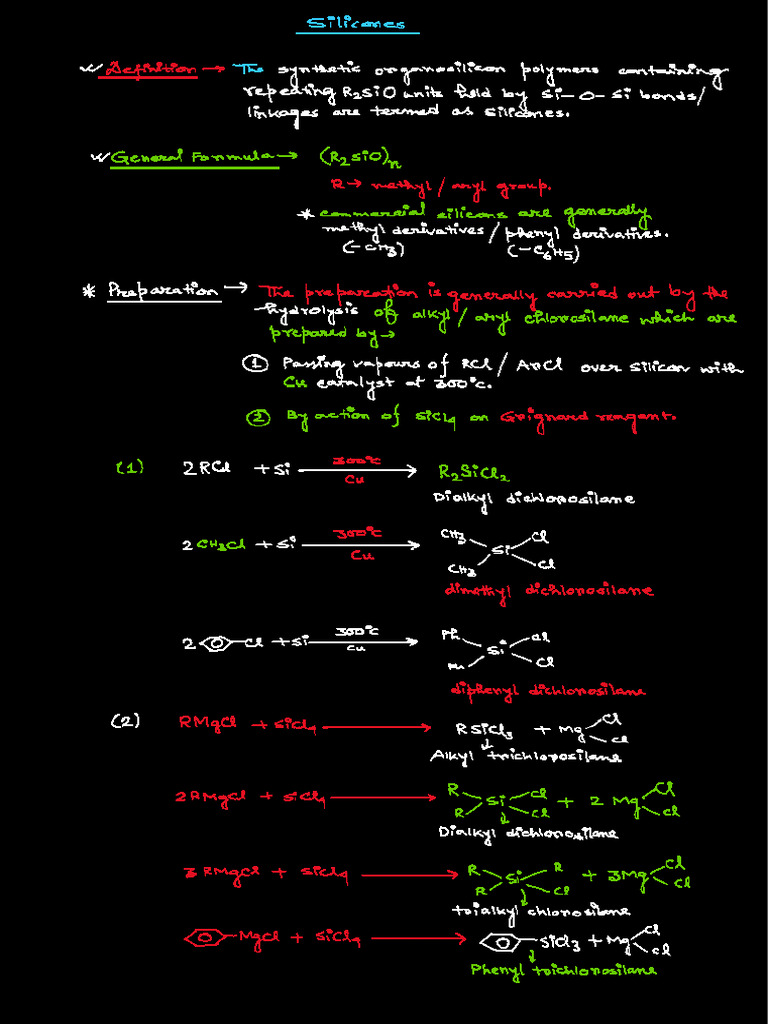 Silicones
Definition → The synthetic organosilicon polymers containing
repeating R₂SiO units held by Si–O–Si bonds/
linkages are termed as silicones.
General Formula → (R₂SiO)n
R → methyl / aryl group.
* commercial silicons are generally
methyl derivatives / phenyl derivatives.
(–CH₃) (–C₆H₅)
* Preparation → The preparation is generally carried out by the
hydrolysis of alkyl / aryl chlorosilane which are
prepared by →
① Passing vapours of RCl / ArCl over silicon with
Cu catalyst at 300°C.
② By action of SiCl₄ on Grignard reagent.
(1) 2RCl + Si 300°C Cu → R₂SiCl₂
Dialkyl dichlorosilane
2CH₃Cl + Si 300°C Cu → CH₃ CH₃ Si Cl Cl
dimethyl dichlorosilane
2 Cl + Si 300°C Cu → Ph Ph Si Cl Cl
diphenyl dichlorosilane
(2) RMgCl + SiCl₄ → RSiCl₃ + Mg Cl Cl
Alkyl trichlorosilane
2RMgCl + SiCl₄ → R R Si Cl Cl + 2 Mg Cl Cl
Dialkyl dichlorosilane
3RMgCl + SiCl₄ → R R Si R Cl + 3Mg Cl Cl
trialkyl chlorosilane
MgCl + SiCl₄ → SiCl₃ + Mg Cl Cl
Phenyl trichlorosilane